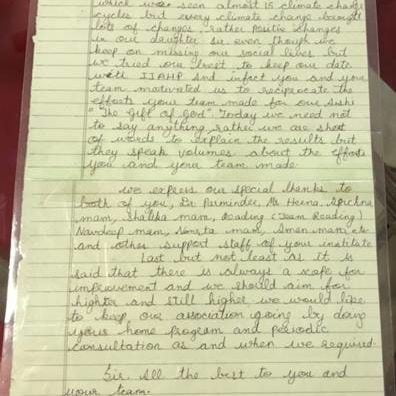 which we've seen almost 15 climate change
cycles but every climate change brought
lots of changes, rather positive changes
in our daughter so even though we
keep on missing our social lives but
we tried our best to keep our date
with IIAHP and infect you and your
team motivated us to reciprocate the
efforts your team made for our Sushi
"The Gift of God". Today we need not
to say anything, rather we are short
of words to explain the results but
they speak volumes about the efforts
you and your team made.
We express our special thanks to
both of you, Sir Parminder, Ms Heena,
mam, Shalika mam, Reading (Team Reading)
Navdeep mam, Namrta mam, Simon mam etc
and other support staff of your institute
Last but not least as it is
said that there is always a scope for
improvement and we should aim for
higher and still higher we would like
to keep our association going by doing
your home program and periodic
consultation as and when we required.
Sir All the best to you and
your team.